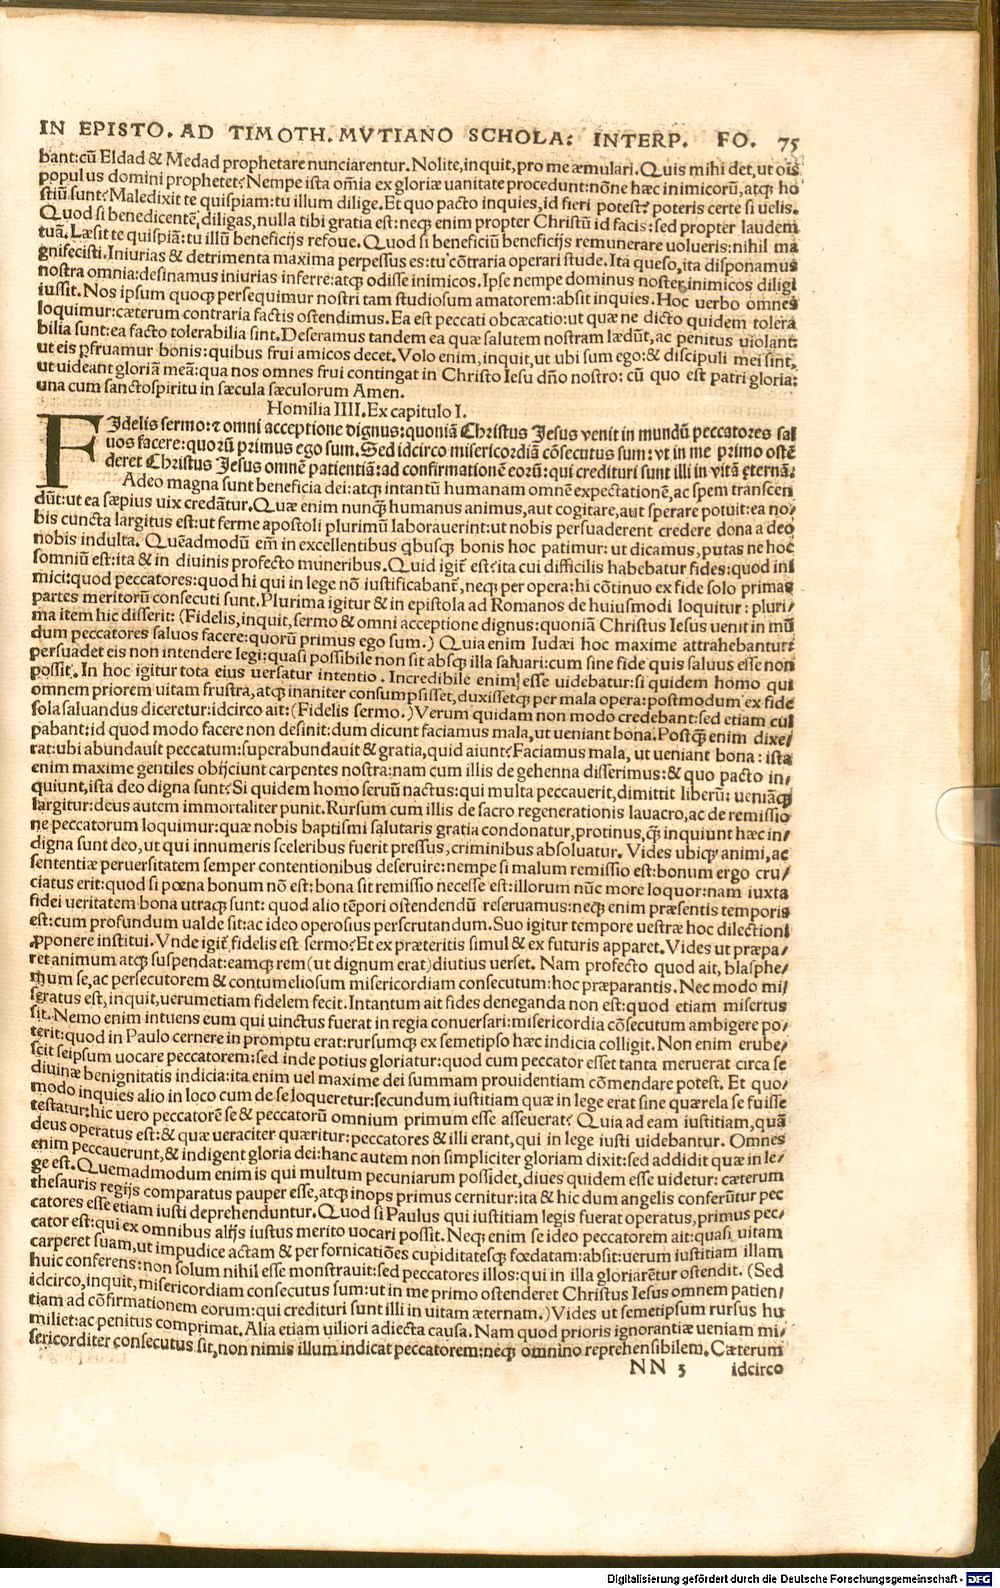 IN EPISTO. AD TIMOTH. MVTIANO SCHOLA: INTERP. FO. 75
bant: cū Eldad & Medad prophetare nunciarentur. Nolite, inquit, pro me æmulari. Quis mihi det, ut oīs
populus domini prophetet? Nempe ista oīmia ex gloriæ uanitate procedunt: nōne hæc inimicorū, atq; ho
stiū sunt? Maledixit te quispiam: tu illum dilige. Et quo pacto inquies, id fieri potest? poteris certe si uelis.
Quod si benedicentē, diligas, nulla tibi gratia est: neq; enim propter Christū id facis: sed propter laudem
tuā. Læsit te quispiā: tu illū beneficijs refoue. Quod si beneficiū beneficijs remunerare uolueris: nihil ma
gnifecisti. Iniurias & detrimenta maxima perpessus es: tu cōtraria operari stude. Ita queso, ita disponamus
nostra omnia: desinamus iniurias inferre: atq; odisse inimicos. Ipse nempe dominus noster inimicos diligi
iussit. Nos ipsum quoq; persequimur nostri tam studiosum amatorem: absit inquies. Hoc uerbo omnes
loquimur: cæterum contraria factis ostendimus. Ea est peccati obcæcatio: ut quæ ne dicto quidem tolera
bilia sunt: ea facto tolerabilia sint. Deseramus tandem ea quæ salutem nostram lædūt, ac penitus uiolant:
ut eis ꝑfruamur bonis: quibus frui amicos decet. Volo enim, inquit, ut ubi sum ego: & discipuli mei sint,
ut uideant gloriā meā: qua nos omnes frui contingat in Christo Iesu dño nostro: cū quo est patri gloria:
una cum sanctospiritu in sæcula sæculorum Amen.
Homilia IIII. Ex capitulo I.
FIdelis sermo: ⁊ omni acceptione dignus: quoniā Christus Jesus venit in mundū peccatores sal
uos facere: quorū primus ego sum. Sed idcirco misericordiā cōsecutus sum: vt in me primo ostē
deret Christus Jesus omnē patientiā: ad confirmationē eorū: qui credituri sunt illi in vitā ęternā:
Adeo magna sunt beneficia dei: atq; intantū humanam omnē expectationē, ac spem transcen
dūt: ut ea sæpius uix credātur. Quæ enim nunq̄ humanus animus, aut cogitare, aut sperare potuit: ea no/
bis cuncta largitus est: ut ferme apostoli plurimū laborauerint: ut nobis persuaderent credere dona a deo
nobis indulta. Quēadmodū em̄ in excellentibus qbusq; bonis hoc patimur: ut dicamus, putas ne hoc
somniū est: ita & in diuinis profecto muneribus. Quid igit̃ est? ita cui difficilis habebatur fides: quod ini
mici: quod peccatores: quod hi qui in lege nō iustificabant̃, neq; per opera: hi cōtinuo ex fide solo primas
partes meritorū consecuti sunt. Plurima igitur & in epistola ad Romanos de huiusmodi loquitur: pluri/
ma item hic disserit: (Fidelis, inquit, sermo & omni acceptione dignus: quoniā Christus Iesus uenit in mū
dum peccatores saluos facere: quorū primus ego sum.) Quia enim Iudæi hoc maxime attrahebantur:
persuadet eis non intendere legi: quasi possibile non sit absq; illa saluari: cum sine fide quis saluus esse non
possit. In hoc igitur tota eius uersatur intentio. Incredibile enim esse uidebatur: si quidem homo qui
omnem priorem uitam frustra, atq; inaniter consumpsisset, duxissetq; per mala opera: postmodum ex fide
sola saluandus diceretur: idcirco ait: (Fidelis sermo.) Verum quidam non modo credebant: sed etiam cul
pabant: id quod modo facere non desinit: dum dicunt faciamus mala, ut ueniant bona. Postq̄ enim dixe/
rat: ubi abundauit peccatum: superabundauit & gratia, quid aiunt? Faciamus mala, ut ueniant bona: ista
enim maxime gentiles obijciunt carpentes nostra: nam cum illis de gehenna disserimus: & quo pacto in/
quiunt, ista deo digna sunt? Si quidem homo seruū nactus: qui multa peccauerit, dimittit liberū: ueniāq;
largitur: deus autem immortaliter punit. Rursum cum illis de sacro regenerationis lauacro, ac de remissio
ne peccatorum loquimur: quæ nobis baptismi salutaris gratia condonatur, protinus, q̄ inquiunt hæc in/
digna sunt deo, ut qui innumeris sceleribus fuerit pressus, criminibus absoluatur. Vides ubiq; animi, ac
sententiæ peruersitatem semper contentionibus deseruire: nempe si malum remissio est: bonum ergo cru/
ciatus erit: quod si pœna bonum nō est: bona sit remissio necesse est: illorum nūc more loquor: nam iuxta
fidei ueritatem bona utraq; sunt: quod alio tēpori ostendendū reseruamus: neq; enim præsentis temporis
est: cum profundum ualde sit: ac ideo operosius perscrutandum. Suo igitur tempore uestræ hoc dilectioni
ꝓponere institui. Vnde igit̃ fidelis est sermo? Et ex præteritis simul & ex futuris apparet. Vides ut præpa/
ret animum atq; suspendat: eamq; rem (ut dignum erat) diutius uerset. Nam profecto quod ait, blasphe/
mum se, ac persecutorem & contumeliosum misericordiam consecutum: hoc præparantis. Nec modo mi/
seratus est, inquit, uerumetiam fidelem fecit. Intantum ait fides deneganda non est: quod etiam misertus
sit. Nemo enim intuens eum qui uinctus fuerat in regia conuersari: misericordia cōsecutum ambigere po/
terit: quod in Paulo cernere in promptu erat: rursumq; ex semetipso hæc indicia colligit. Non enim erube/
scit seipsum uocare peccatorem: sed inde potius gloriatur: quod cum peccator esset tanta meruerat circa se
diuinæ benignitatis indicia: ita enim uel maxime dei summam prouidentiam cōmendare potest. Et quo/
modo inquies alio in loco cum de se loqueretur: secundum iustitiam quæ in lege erat sine quærela se fuisse
testatur: hic uero peccatorē se & peccatorū omnium primum esse asseuerat? Quia ad eam iustitiam, quā
deus operatus est: & quæ ueraciter quæritur: peccatores & illi erant, qui in lege iusti uidebantur. Omnes
enim peccauerunt, & indigent gloria dei: hanc autem non simpliciter gloriam dixit: sed addidit quæ in le/
ge est. Quemadmodum enim is qui multum pecuniarum possidet, diues quidem esse uidetur: cæterum
thesauris regijs comparatus pauper esse, atq; inops primus cernitur: ita & hic dum angelis conferūtur pec
catores esse etiam iusti deprehenduntur. Quod si Paulus qui iustitiam legis fuerat operatus, primus pec/
cator est: qui ex omnibus alijs iustus merito uocari possit. Neq; enim se ideo peccatorem ait: quasi uitam
carperet suam, ut impudice actam & per fornicatiōes cupiditatesq; fœdatam: absit: uerum iustitiam illam
huic conferens: non solum nihil esse monstrauit: sed peccatores illos: qui in illa gloriarētur ostendit. (Sed
idcirco, inquit, misericordiam consecutus sum: ut in me primo ostenderet Christus Iesus omnem patien/
tiam ad cōfirmationem eorum: qui credituri sunt illi in uitam æternam.) Vides ut semetipsum rursus hu
miliet: ac penitus comprimat. Alia etiam uiliori adiecta causa. Nam quod prioris ignorantiæ ueniam mi/
sericorditer consecutus sit, non nimis illum indicat peccatorem: neq; omnino reprehensibilem. Cæterum
NN 3 idcirco
Digitalisierung gefördert durch die Deutsche Forschungsgemeinschaft - DFG